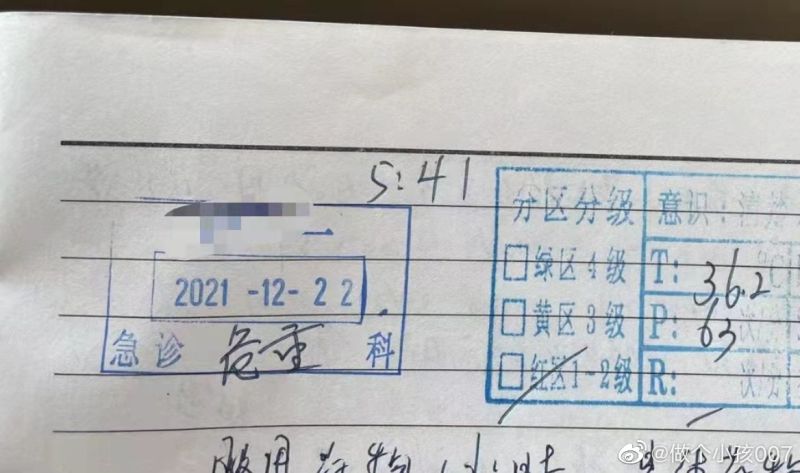 5:41
分区分级 意识:清楚
一
2021-12-22
急诊 危重 科
□绿区4级 T: 36.2 ℃
□黄区3级 P: 63 次
□红区1-2级 R: 次
服用 小时
@做个小孩007